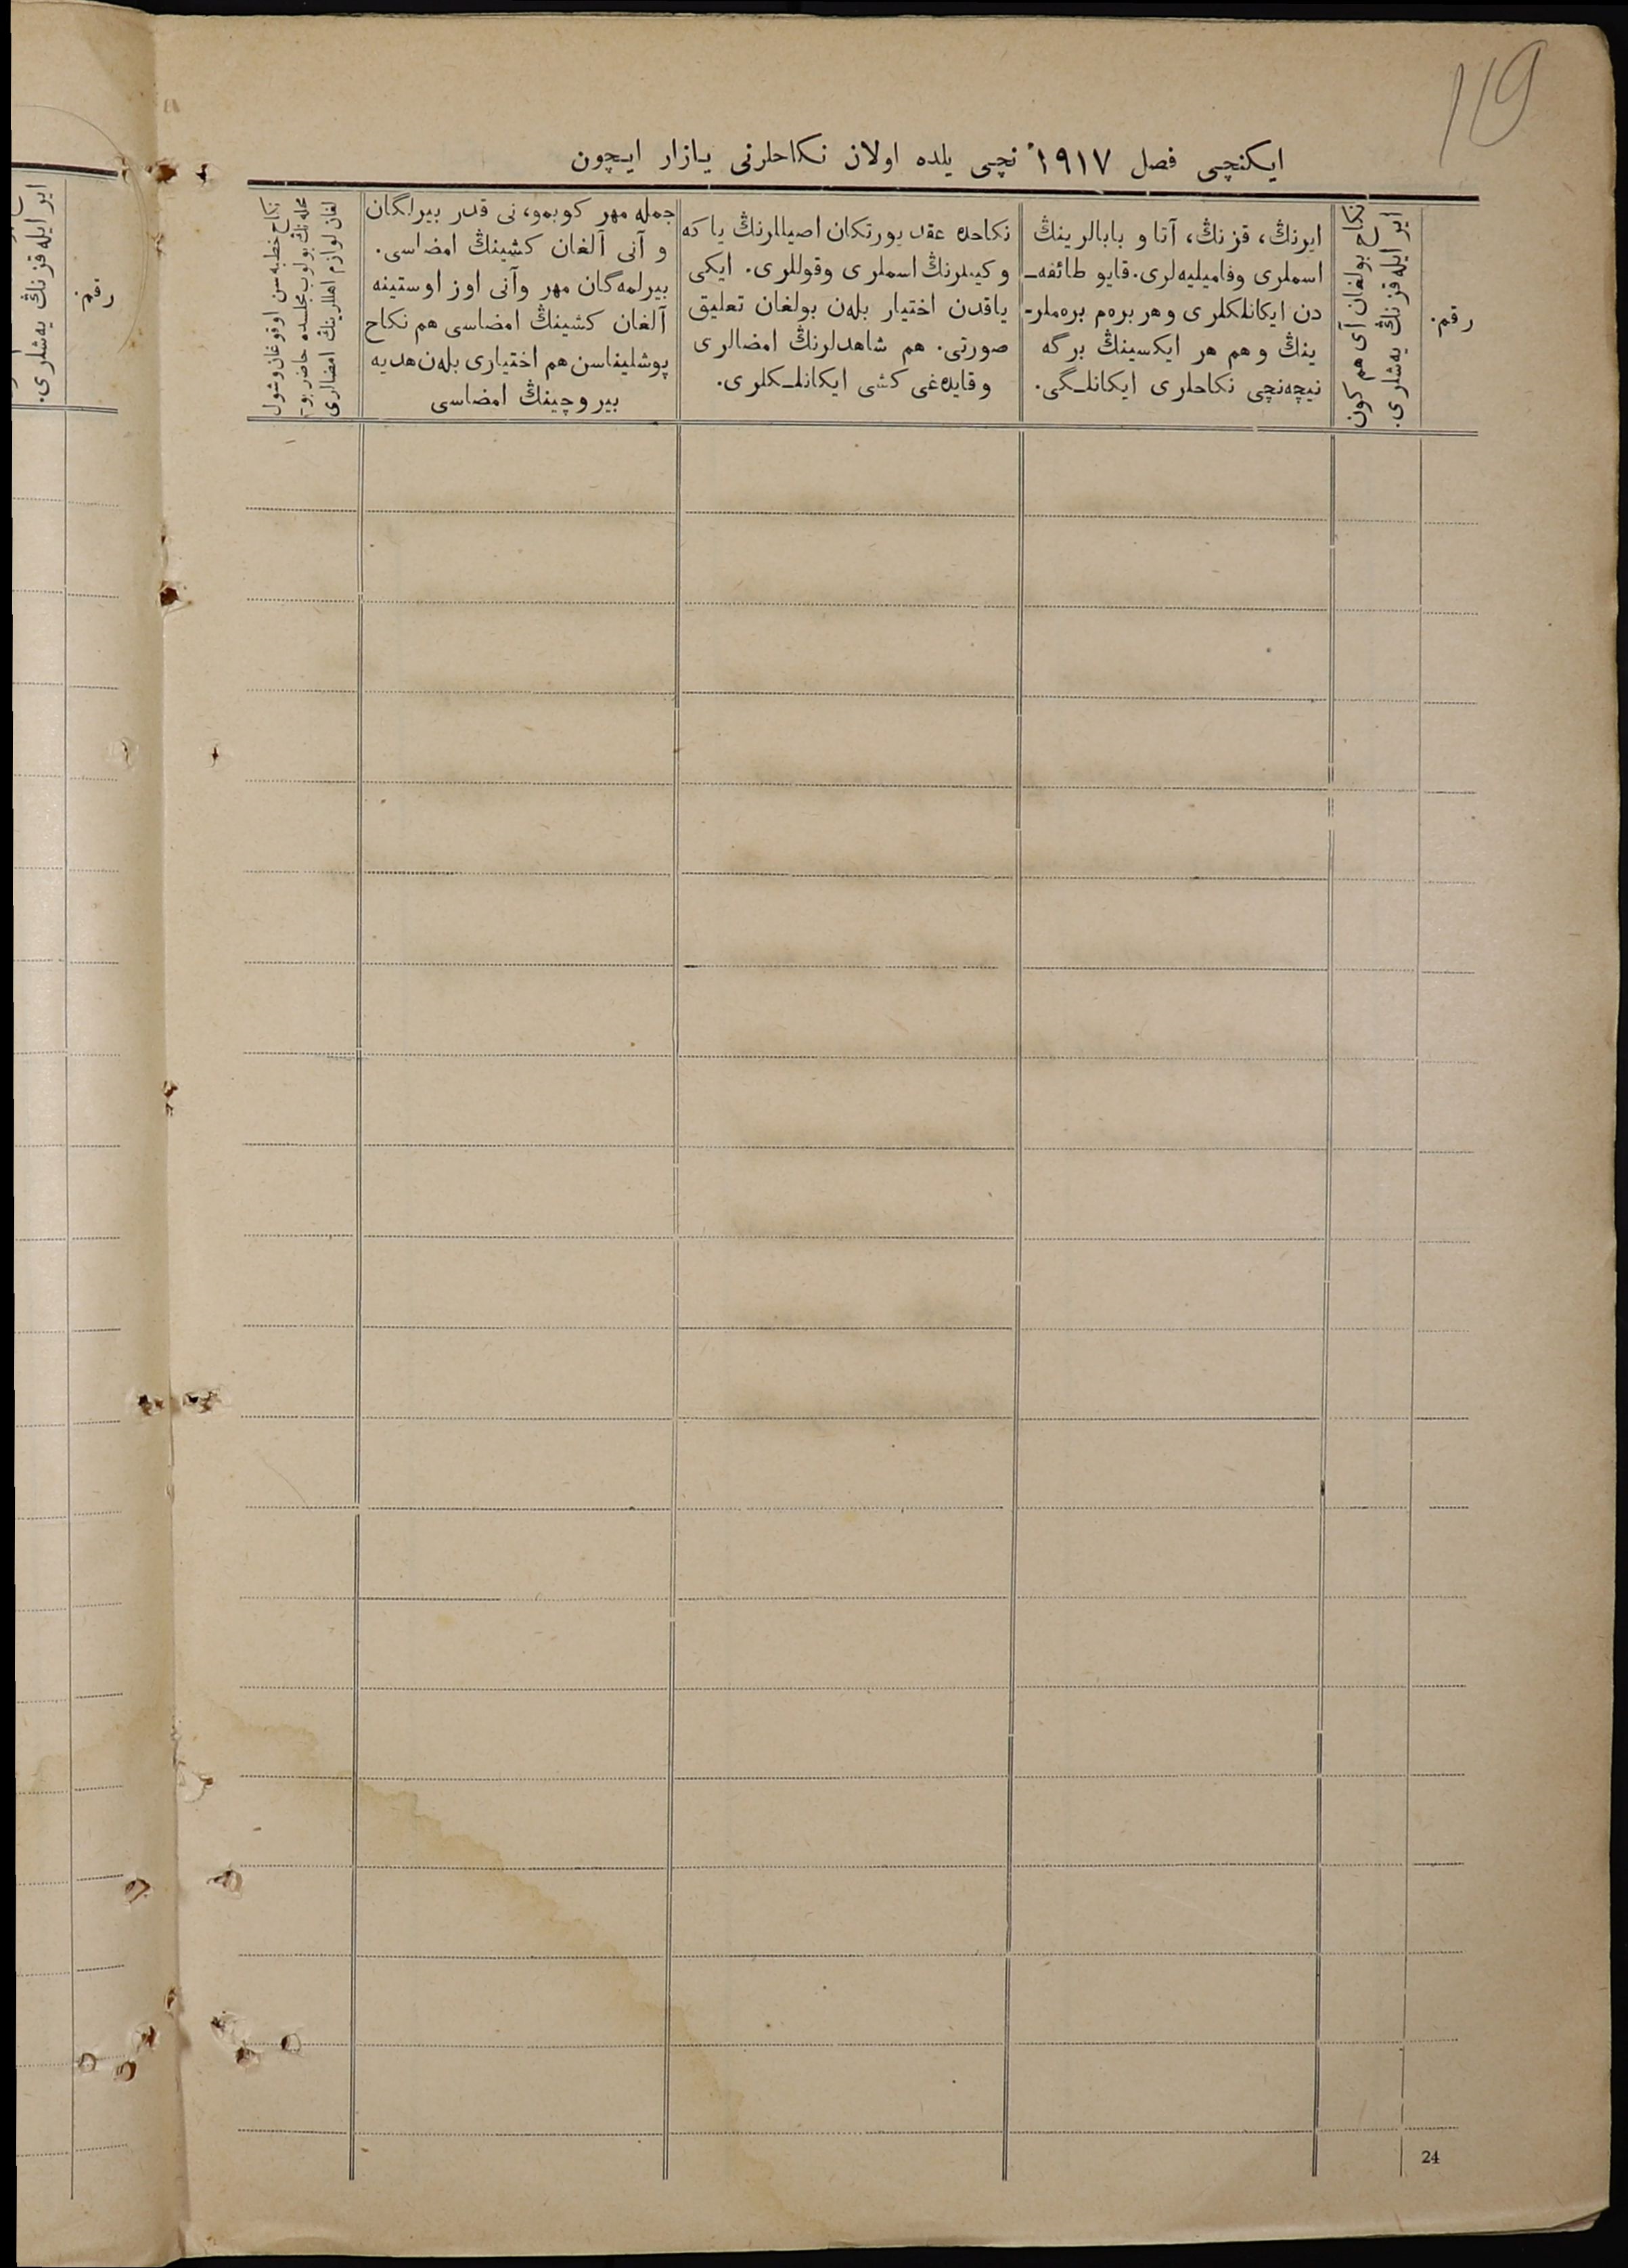 119
ایکنچی فصل ۱۹۱۷ نچی یلده اولان نکاحلرنی یازار ایچون
رقم.
ایر ایله قزنڭ یەشلری.
نکاح بولغان آی هم کون
ایرنڭ، قزنڭ، آتا و بابالرینڭ
اسملری وفامیلیه‌لری. قایو طائفه‌ـ
دن ایکانلکلری وهر برەم برەملرـ
ینڭ وهم هر ایکسینڭ برگه
نیچەنچی نکاحلری ایکانلـگی.
نکاحده عقد یورتکان اصیللرنڭ یا که
وکیللرنڭ اسملری وقوللری. ایکی
یاقدن اختیار بلەن بولغان تعلیق
صورتی. هم شاهدلرنڭ امضالری
وقایدەغی کشی ایکانلـکلری.
جمله مهر کوبمو، نی قدر بیرلگان
و آنی آلغان کشینڭ امضاسی.
بیرلمەگان مهر وآنی اوز اوستینه
آلغان کشینڭ امضاسی هم نکاح
پوشلیناسن هم اختیاری بلەن هدیه
بیروچینڭ امضاسی
نکاح خطبه‌سن اوقوغان وشول
محله‌نڭ بولوب مجلسده حاضر بو
لغان لوازم اهللرینڭ امضالری
24
رقم.
ایر ایله قزنڭ یەشلری.